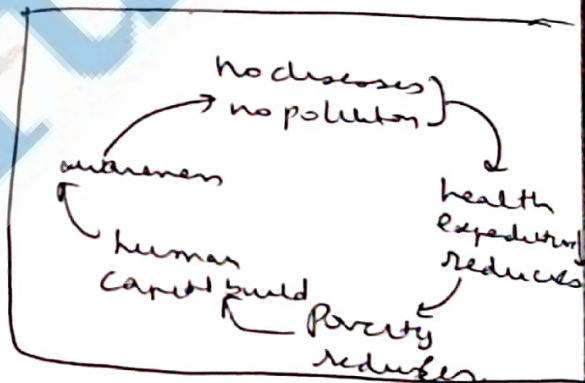 no diseases
no polluton
health
expeditur
reduces
Poverty
reduces
human
capitl build
awareness